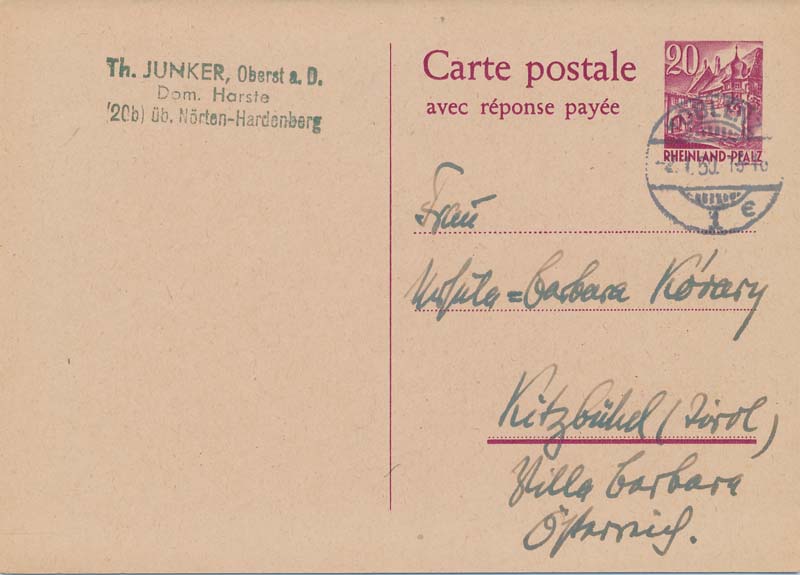 Th. JUNKER, Oberst a. D.
Dom. Harste
(20b) üb. Nörten-Hardenberg
Carte postale
avec réponse payée
20
RHEINLAND-PFALZ
Frau
Ursula=Barbara Kórary
Kitzbühel (Tirol)
Villa Barbara
Österreich.